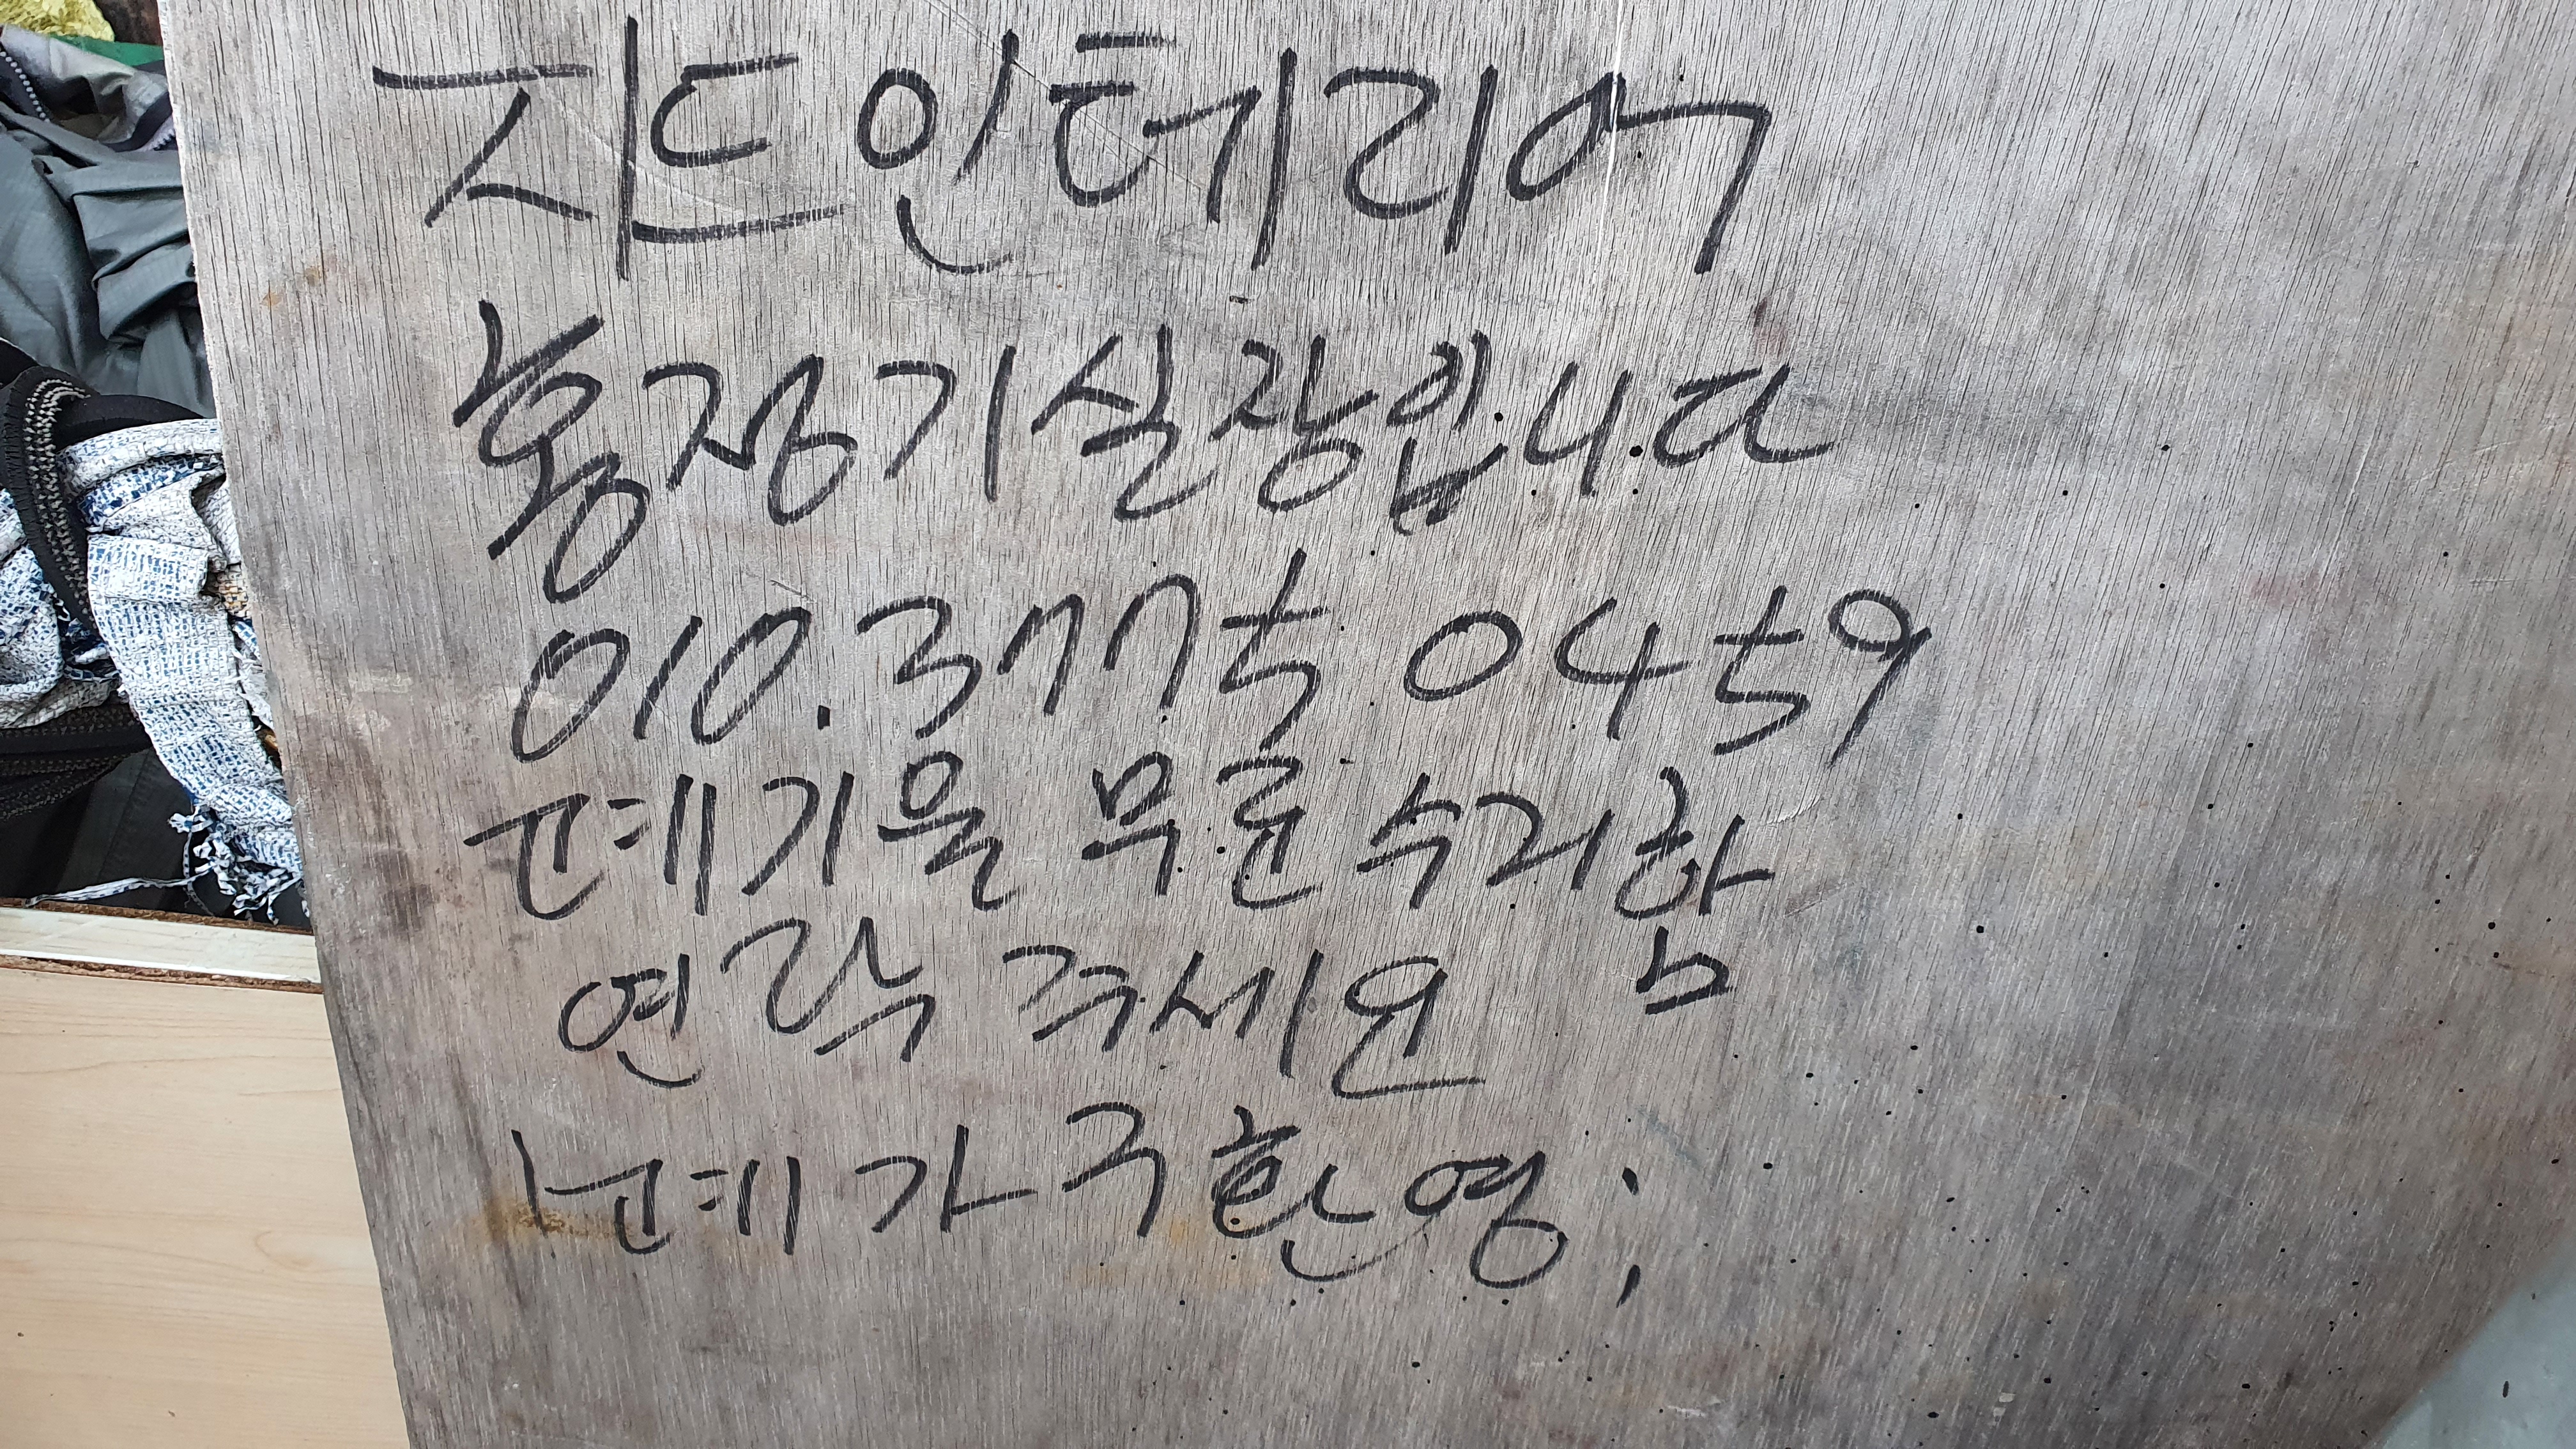 지드인테리어
홍정기실장입니다
010.3775 0459
포테기올 무료수리함
연락주세요
포테가구환영;